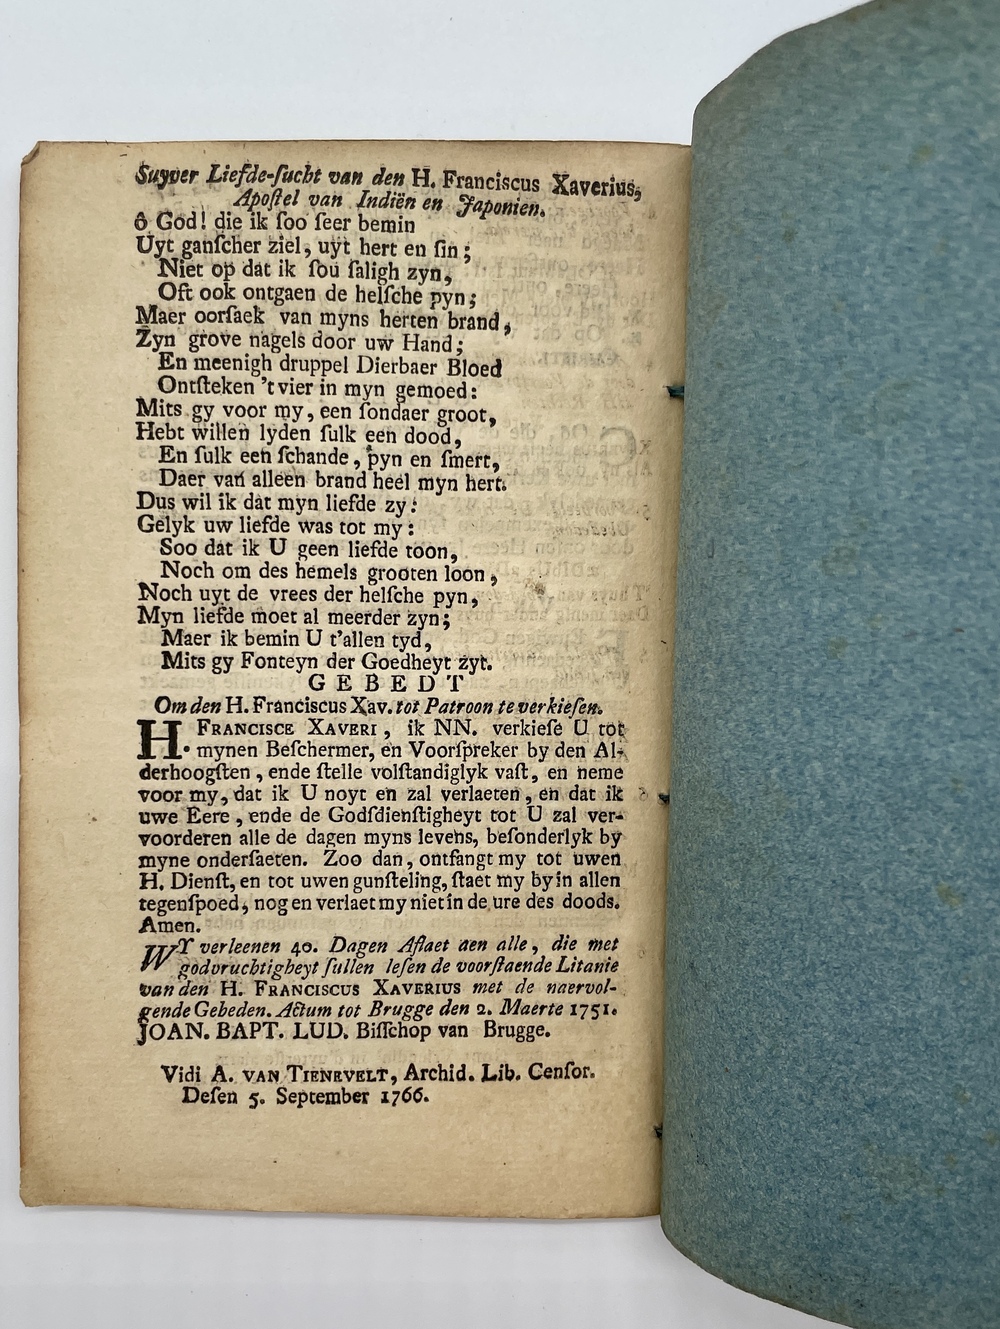 Suyver Liefde-ſucht van den H. Franciscus Xaverius,
Apoſtel van Indiën en Japonien.
ô God! die ik ſoo ſeer bemin
Uyt ganſcher ziel, uyt hert en ſin;
Niet op dat ik ſou ſaligh zyn,
Oft ook ontgaen de helſche pyn;
Maer oorſaek van myns herten brand,
Zyn grove nagels door uw Hand;
En meenigh druppel Dierbaer Bloed
Ontſteken 't vier in myn gemoed:
Mits gy voor my, een ſondaer groot,
Hebt willen lyden ſulk een dood,
En ſulk een ſchande, pyn en ſmert,
Daer van alleen brand heel myn hert.
Dus wil ik dat myn liefde zy:
Gelyk uw liefde was tot my:
Soo dat ik U geen liefde toon,
Noch om des hemels grooten loon,
Noch uyt de vrees der helſche pyn,
Myn liefde moet al meerder zyn;
Maer ik bemin U t'allen tyd,
Mits gy Fonteyn der Goedheyt zyt.
GEBEDT
Om den H. Franciscus Xav. tot Patroon te verkieſen.
H. FRANCISCE XAVERI, ik NN. verkieſe U tot
mynen Beſchermer, en Voorſpreker by den Al-
derhoogſten, ende ſtelle volſtandiglyk vaſt, en neme
voor my, dat ik U noyt en zal verlaeten, en dat ik
uwe Eere, ende de Godſdienſtigheyt tot U zal ver-
voorderen alle de dagen myns levens, beſonderlyk by
myne onderſaeten. Zoo dan, ontfangt my tot uwen
H. Dienſt, en tot uwen gunſteling, ſtaet my by in allen
tegenſpoed, nog en verlaet my niet in de ure des doods.
Amen.
WY verleenen 40. Dagen Aflaet aen alle, die met
godvruchtigheyt ſullen leſen de voorſtaende Litanie
van den H. FRANCISCUS XAVERIUS met de naervol-
gende Gebeden. Actum tot Brugge den 2. Maerte 1751.
JOAN. BAPT. LUD. Biſſchop van Brugge.
Vidi A. VAN TIENEVELT, Archid. Lib. Cenſor.
Deſen 5. September 1766.